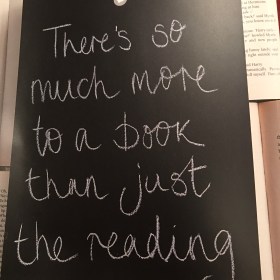 There's so
much more
to a book
than just
the reading